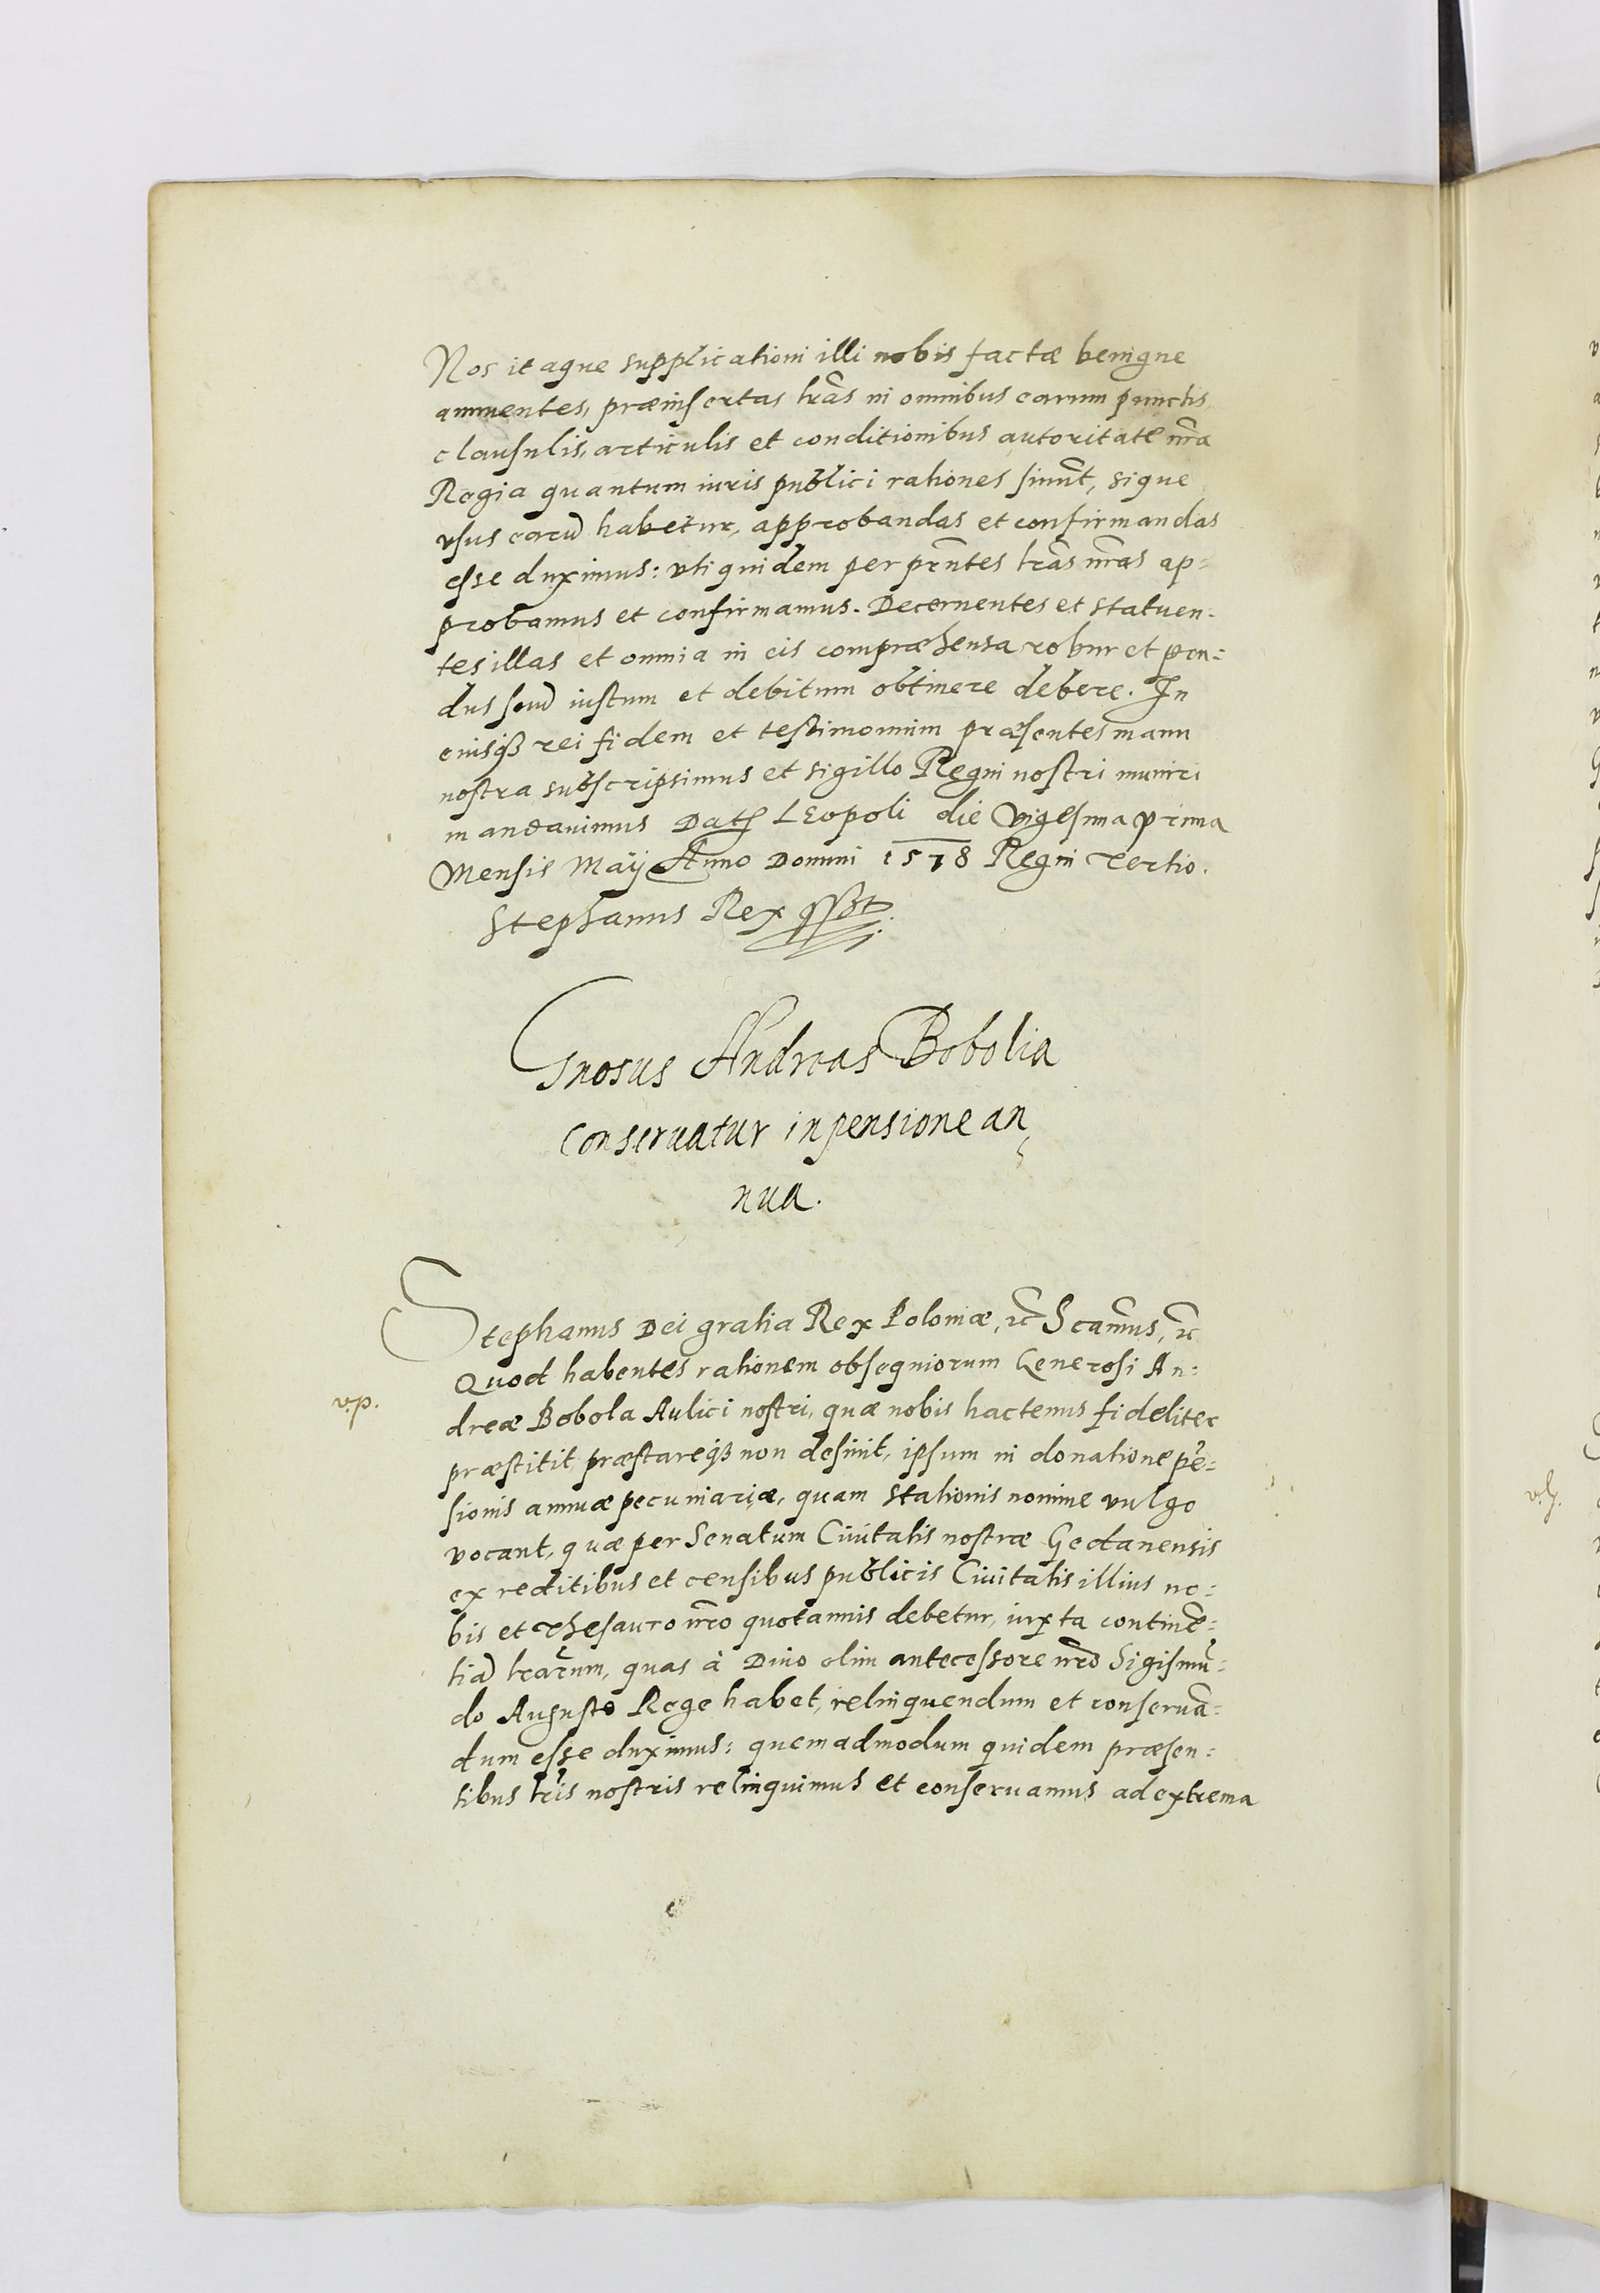 Nos itaque supplicationi illi nobis factæ benigne
annuentes, præinsertas lr̃as in omnibus earum punctis,
clausulis, articulis et conditionibus autoritate nr̃a
Regia quantum iuris publici rationes sinũt, sique
vsus earũ habetur, approbandas et confirmandas
esse duximus: vti quidem per pñtes lr̃as nr̃as ap=
probamus et confirmamus. Decernentes et statuen=
tes illas et omnia in eis compræhensa robur et pon=
dus suũ iustum et debitum obtinere debere. In
cuiusqȝ rei fidem et testimonium præsentes manu
nostra subscripsimus et sigillo Regni nostri muniri
mandauimus Dat̃ Leopoli die Vigesima prima
Mensis Maij Anno Domini 1578 Regni Tertio.
Stephanus Rex sst
Gnosus Andreas Bobolia
conseruatur in pensione an,
nua.
Stephanus Dei gratia Rex Poloniæ, ꝛc̃ S camus, ꝛc̃
Quod habentes rationem obsequiorum Generosi An=
v.p.
dreæ Bobola Aulici nostri, quæ nobis hactenus fideliter
præstitit præstareqȝ non desinit, ipsum in donatione pẽ=
sionis annuæ pecuniariæ, quam stationis nomine vulgo
vocant, quæ per Senatum Ciuitatis nostræ Gedanensis
ex reditibus et censibus publicis Ciuitatis illius no=
bis et Thesauro nr̃o quotannis debetur, iuxta continẽ=
tiã lr̃arum, quas à Diuo olim antecessore nr̃o Sigismũ=
do Augusto Rege habet, relinquendum et conseruã=
dum esse duximus: quemadmodum quidem præsen=
tibus lr̃is nostris relinquimus et conseruamus ad extrema